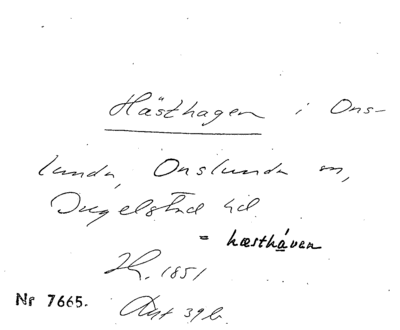 Hästhagen i Ons-
lunda, Onslunda sn,
Ingelstad hd.
= hæstháven
1851
Nr 7665.
39 b.